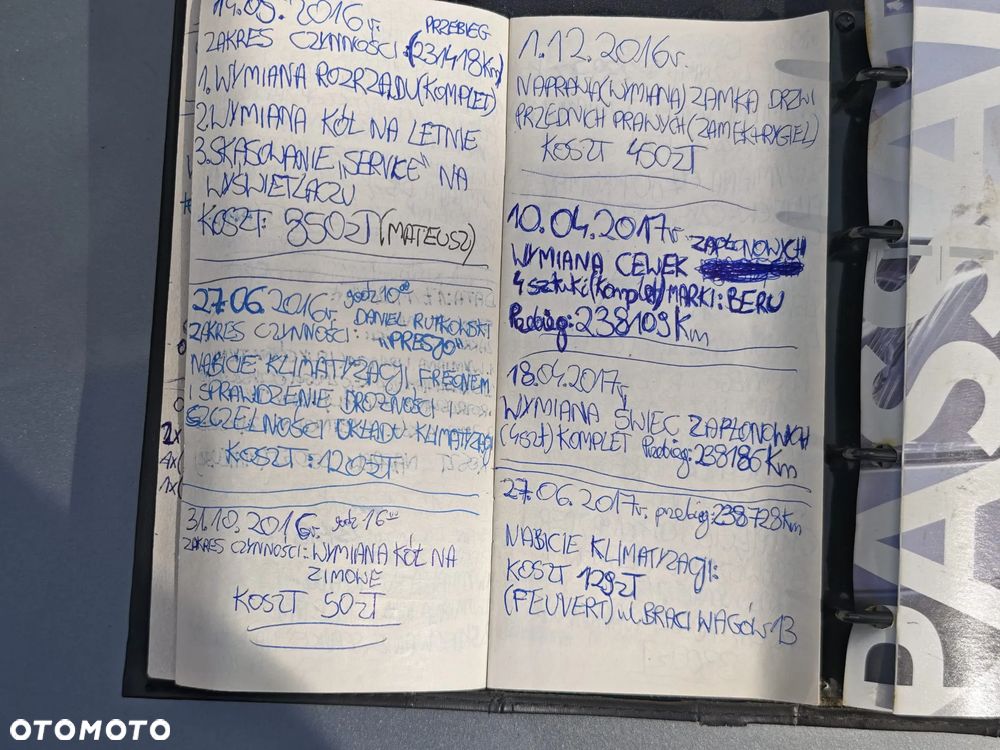 14.05.2016r. PRZEBIEG
ZAKRES CZYNNOŚCI: (231418Km)
1. WYMIANA ROZRZĄDU (KOMPLET)
2. WYMIANA KÓŁ NA LETNIE
3. SKASOWANIE „SERVICE" NA
WYŚWIETLACZU
KOSZT: 350ZŁ (MATEUSZ)
27.06.2016r. godz 10⁰⁰
DANIEL RUTKOWSKI
ZAKRES CZYNNOŚCI: "PRESJO"
NABICIE KLIMATYZACJI FREONEM
I SPRAWDZENIE DROŻNOŚCI I
SZCZELNOŚCI UKŁADU KLIMATYZACJI
KOSZT: 120ZŁ
31.10.2016r. godz 16⁰⁰
ZAKRES CZYNNOŚCI: WYMIANA KÓŁ NA
ZIMOWE
KOSZT 50ZŁ
2x
4x
1x
1.12.2016r.
NAPRAWA (WYMIANA) ZAMKA DRZWI
PRZEDNICH PRAWYCH (ZAMEK+RYGIEL)
KOSZT 450ZŁ
10.04.2017r. ZAPŁONOWYCH
WYMIANA CEWEK
4 sztuki (komplet) MARKI: BERU
Przebieg: 238109Km
18.04.2017r.
WYMIANA ŚWIEC ZAPŁONOWYCH
(4szt) KOMPLET Przebieg: 238186Km
27.06.2017r. przebieg: 238728Km
NABICIE KLIMATYZACJI:
KOSZT 129ZŁ
(FEUVERT) ul. BRACI WAGÓW 13
PASSAT
OTOMOTO